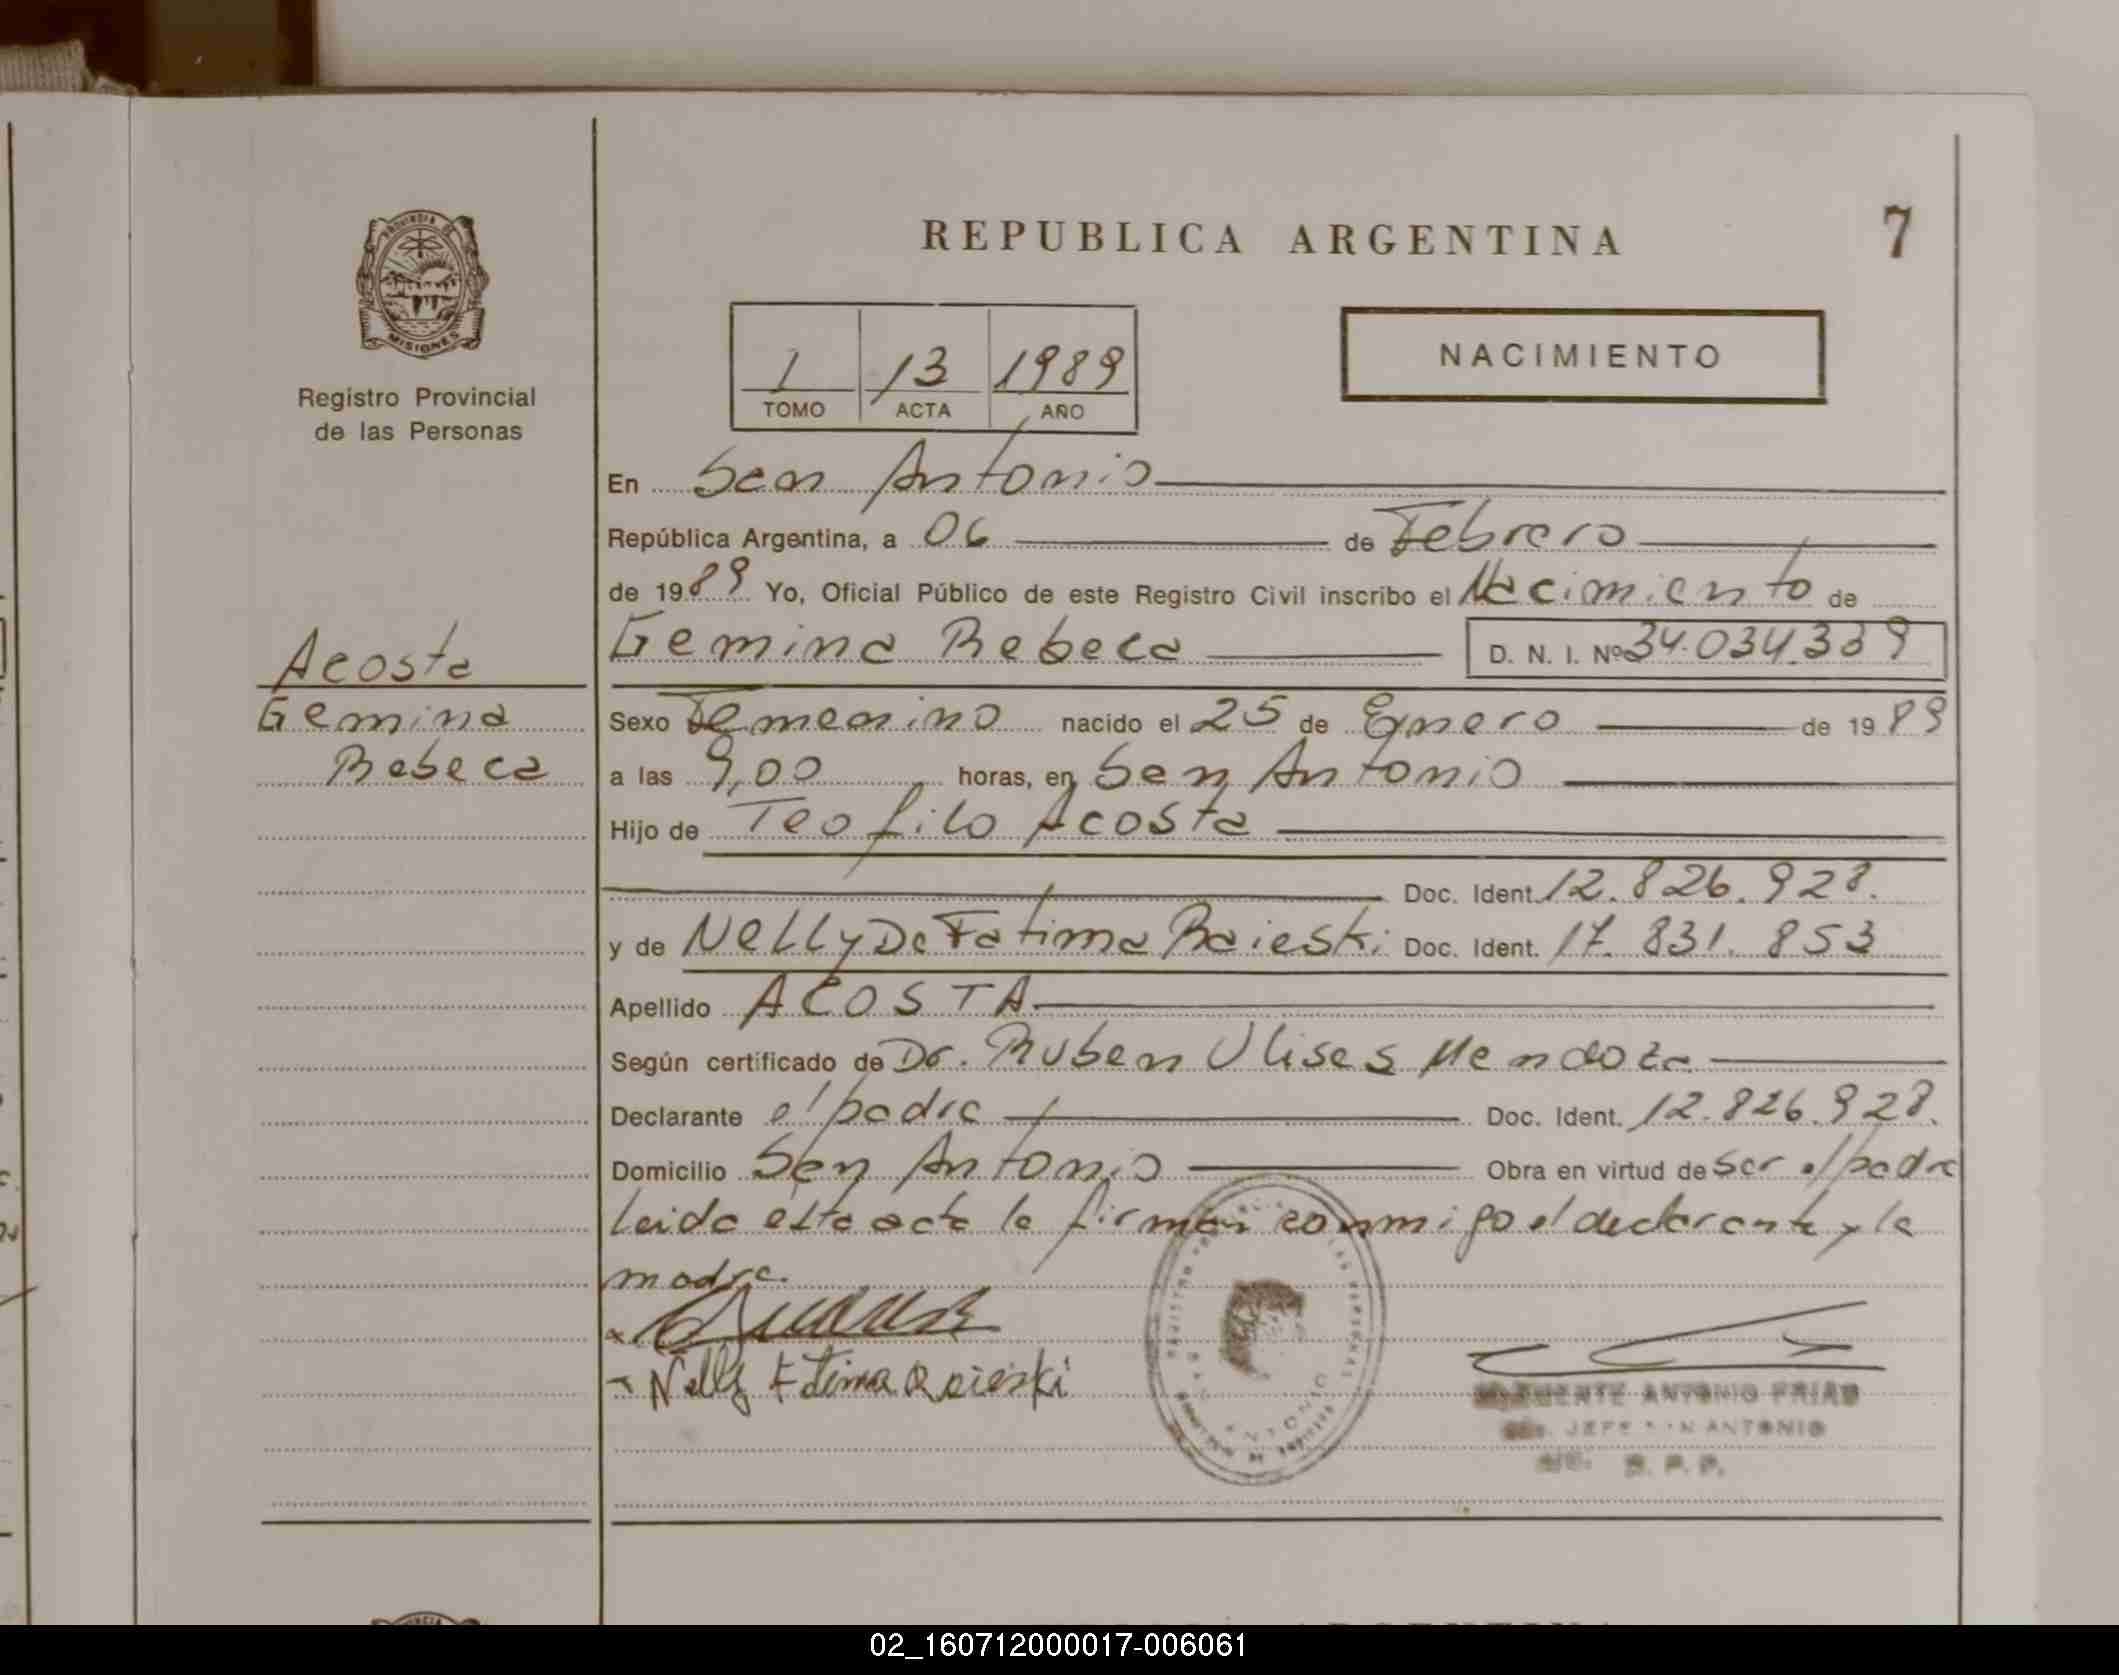 REPUBLICA ARGENTINA
7
PROVINCIA DE
MISIONES
Registro Provincial
de las Personas
1 13 1989
TOMO ACTA AÑO
NACIMIENTO
En San Antonio
República Argentina, a 06 de Febrero
de 1989 Yo, Oficial Público de este Registro Civil inscribo el Nacimiento de
Gemina Rebeca D. N. I. Nº 34.034.339
Acosta
Gemina
Rebeca
Sexo Femenino nacido el 25 de Enero de 1989
a las 9,00 horas, en San Antonio
Hijo de Teofilo Acosta
Doc. Ident. 12.826.928.
y de Nelly De Fatima Raieski Doc. Ident. 17.831.853
Apellido ACOSTA
Según certificado de Dr. Ruben Ulises Mendoza
Declarante el padre Doc. Ident. 12.826.928.
Domicilio San Antonio Obra en virtud de ser el padre
leida esta acta la firman conmigo el declarante y la
madre.
Nelly Fatima Raieski
ANTONIO FRIAS
JEFE ANTONIO
R. P. P.
02_160712000017-006061